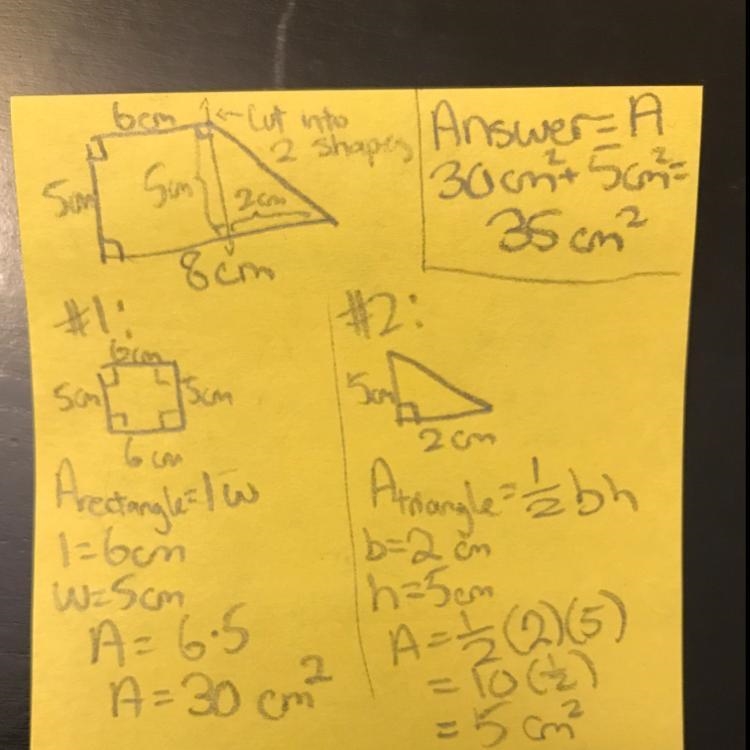 6cm
←Cut into
2 shapes
5cm
5cm
2cm
8cm
Answer = A
30cm²+ 5cm²=
35cm²
#1:
6cm
5cm
5cm
6cm
Arectangle=lw
l=6cm
w=5cm
A= 6·5
A=30 cm²
#2:
5cm
2cm
Atriangle=1/2 bh
b=2 cm
h=5cm
A=1/2(2)(5)
=10(1/2)
=5 cm²